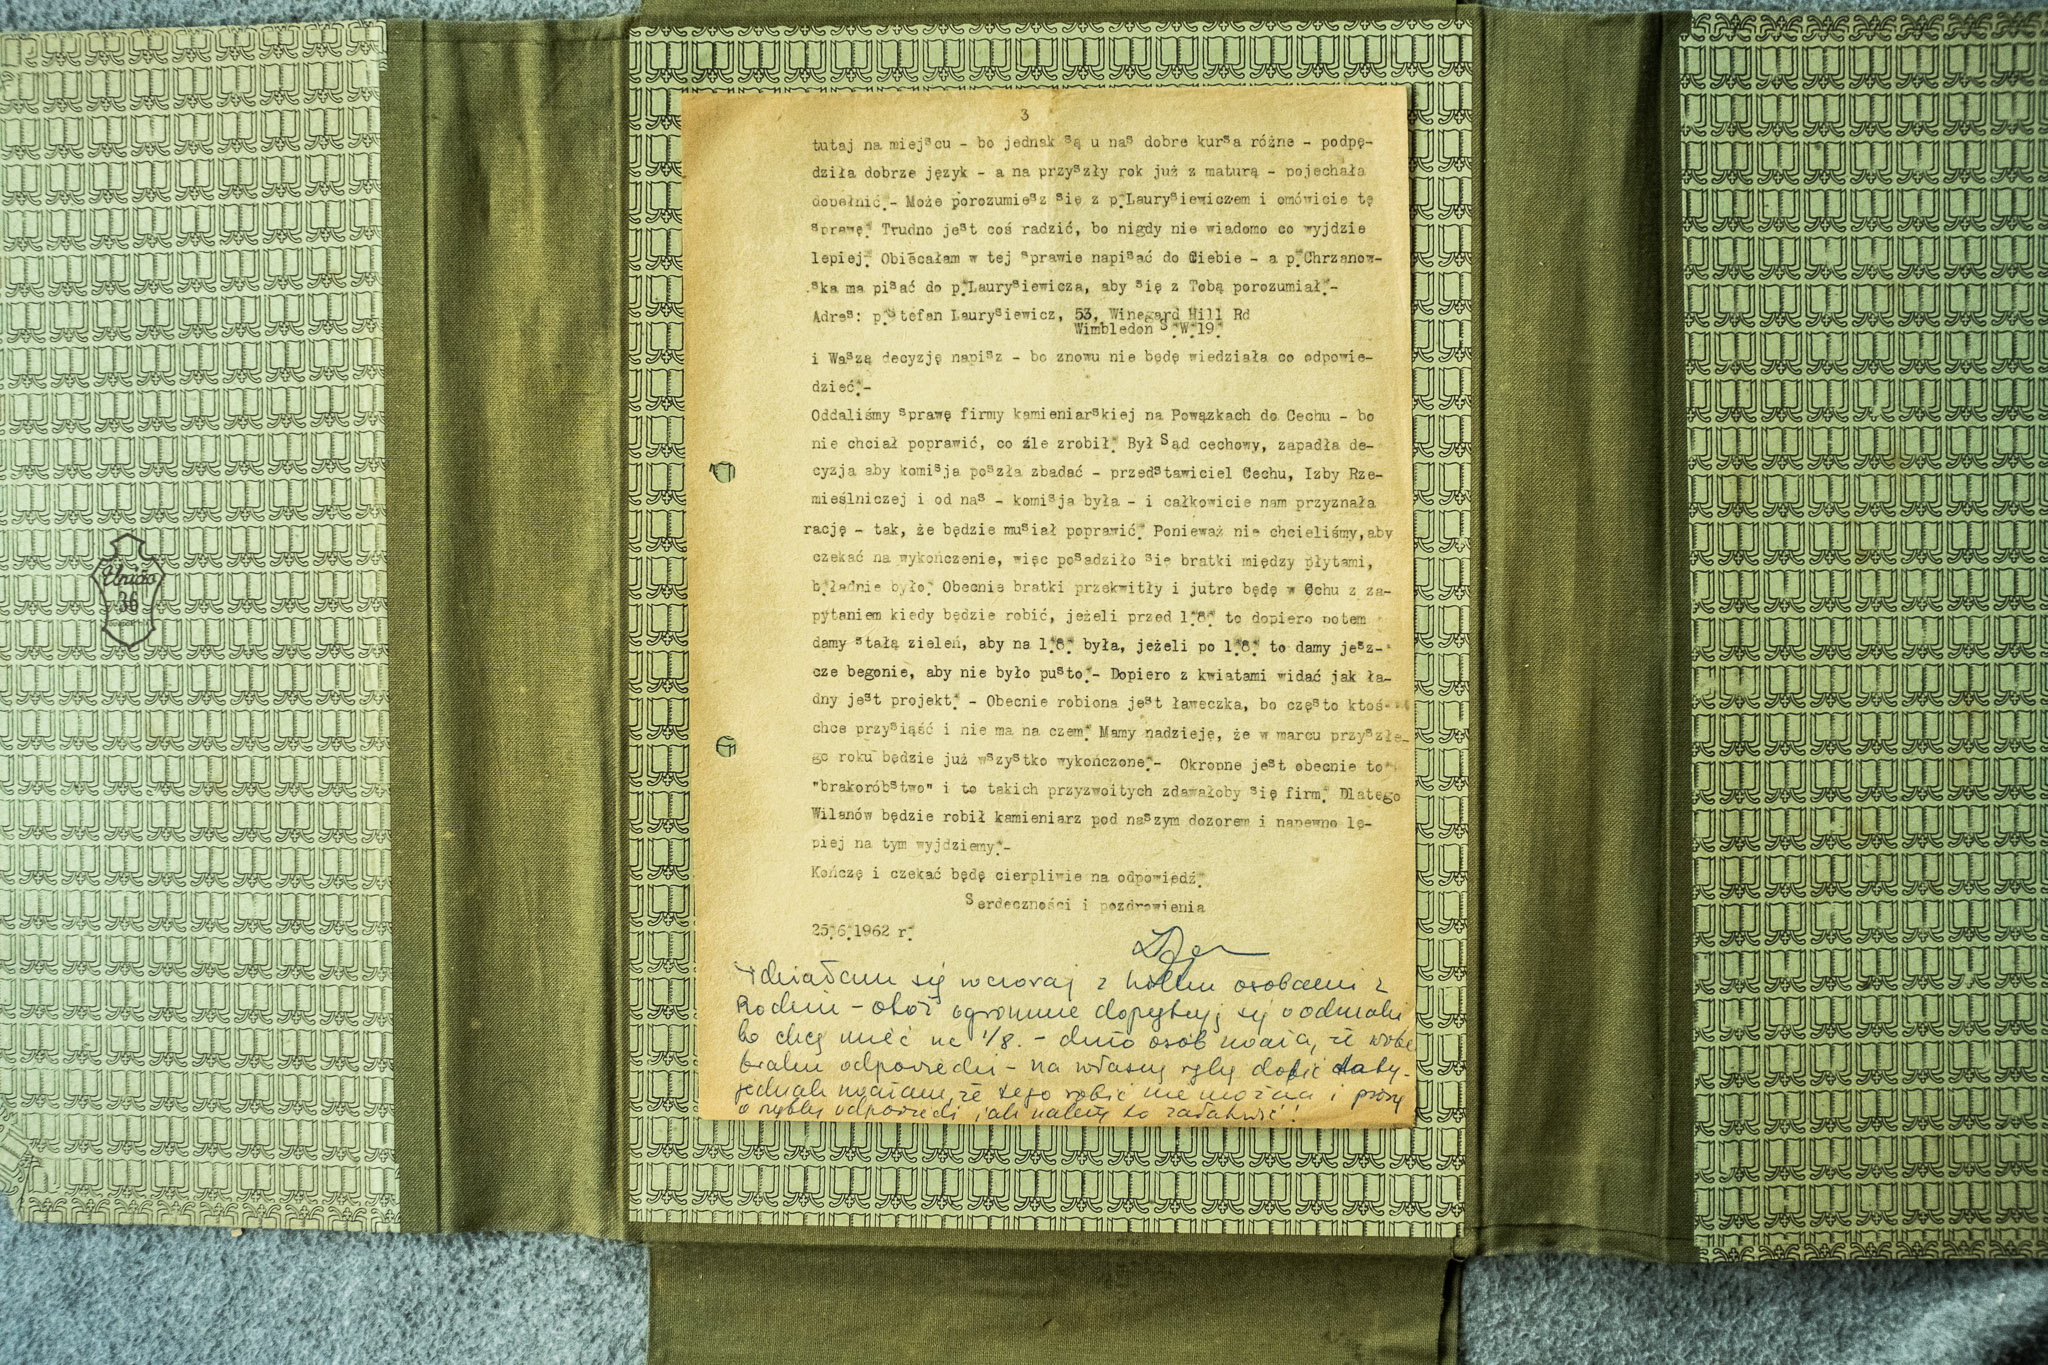 Unido
36
3
tutaj na miejscu - bo jednak są u nas dobre kursa różne - podpę-
dziła dobrze język - a na przyszły rok już z maturą - pojechała
dopełnić.- Może porozumiesz się z p.Laurysiewiczem i omówicie tę
sprawę. Trudno jest coś radzić, bo nigdy nie wiadomo co wyjdzie
lepiej. Obiecałam w tej sprawie napisać do Ciebie - a p.Chrzanow-
ska ma pisać do p.Laurysiewicza, aby się z Tobą porozumiał.-
Adres: p.Stefan Laurysiewicz, 53, Winegard Hill Rd
Wimbledon S.W.19.
i Waszą decyzję napisz - bo znowu nie będę wiedziała co odpowie-
dzieć.-
Oddaliśmy sprawę firmy kamieniarskiej na Powązkach do Cechu - bo
nie chciał poprawić, co źle zrobił. Był Sąd cechowy, zapadła de-
cyzja aby komisja poszła zbadać - przedstawiciel Cechu, Izby Rze-
mieślniczej i od nas - komisja była - i całkowicie nam przyznała
rację - tak, że będzie musiał poprawić. Ponieważ nie chcieliśmy,aby
czekać na wykończenie, więc posadziło się bratki między płytami,
b.ładnie było. Obecnie bratki przekwitły i jutro będę w Cchu z za-
pytaniem kiedy będzie robić, jeżeli przed 1.8. to dopiero potem
damy stałą zieleń, aby na 1.8. była, jeżeli po 1.8. to damy jesz-
cze begonie, aby nie było pusto.- Dopiero z kwiatami widać jak ła-
dny jest projekt. - Obecnie robiona jest ławeczka, bo często ktoś-
chce przysiąść i nie ma na czem. Mamy nadzieję, że w marcu przyszłe-
go roku będzie już wszystko wykończone.- Okropne jest obecnie to
"brakoróbstwo" i to takich przyzwoitych zdawałoby się firm. Dlatego
Wilanów będzie robił kamieniarz pod naszym dozorem i napewno lę-
piej na tym wyjdziemy.-
Kończę i czekać będę cierpliwie na odpowiedź.
Serdeczności i pozdrowienia
25.6.1962 r.
Widziałam się wczoraj z wielu osobami z
Rodzin - otóż ogromnie dopytują się o odznaki
bo chcą mieć na 1/8. - dużo osób uważa, że wobec
braku odpowiedzi - na własną rękę dać
jednak uważam, że tego robić nie można i proszę
o szybką odpowiedź, jak należy to załatwić!